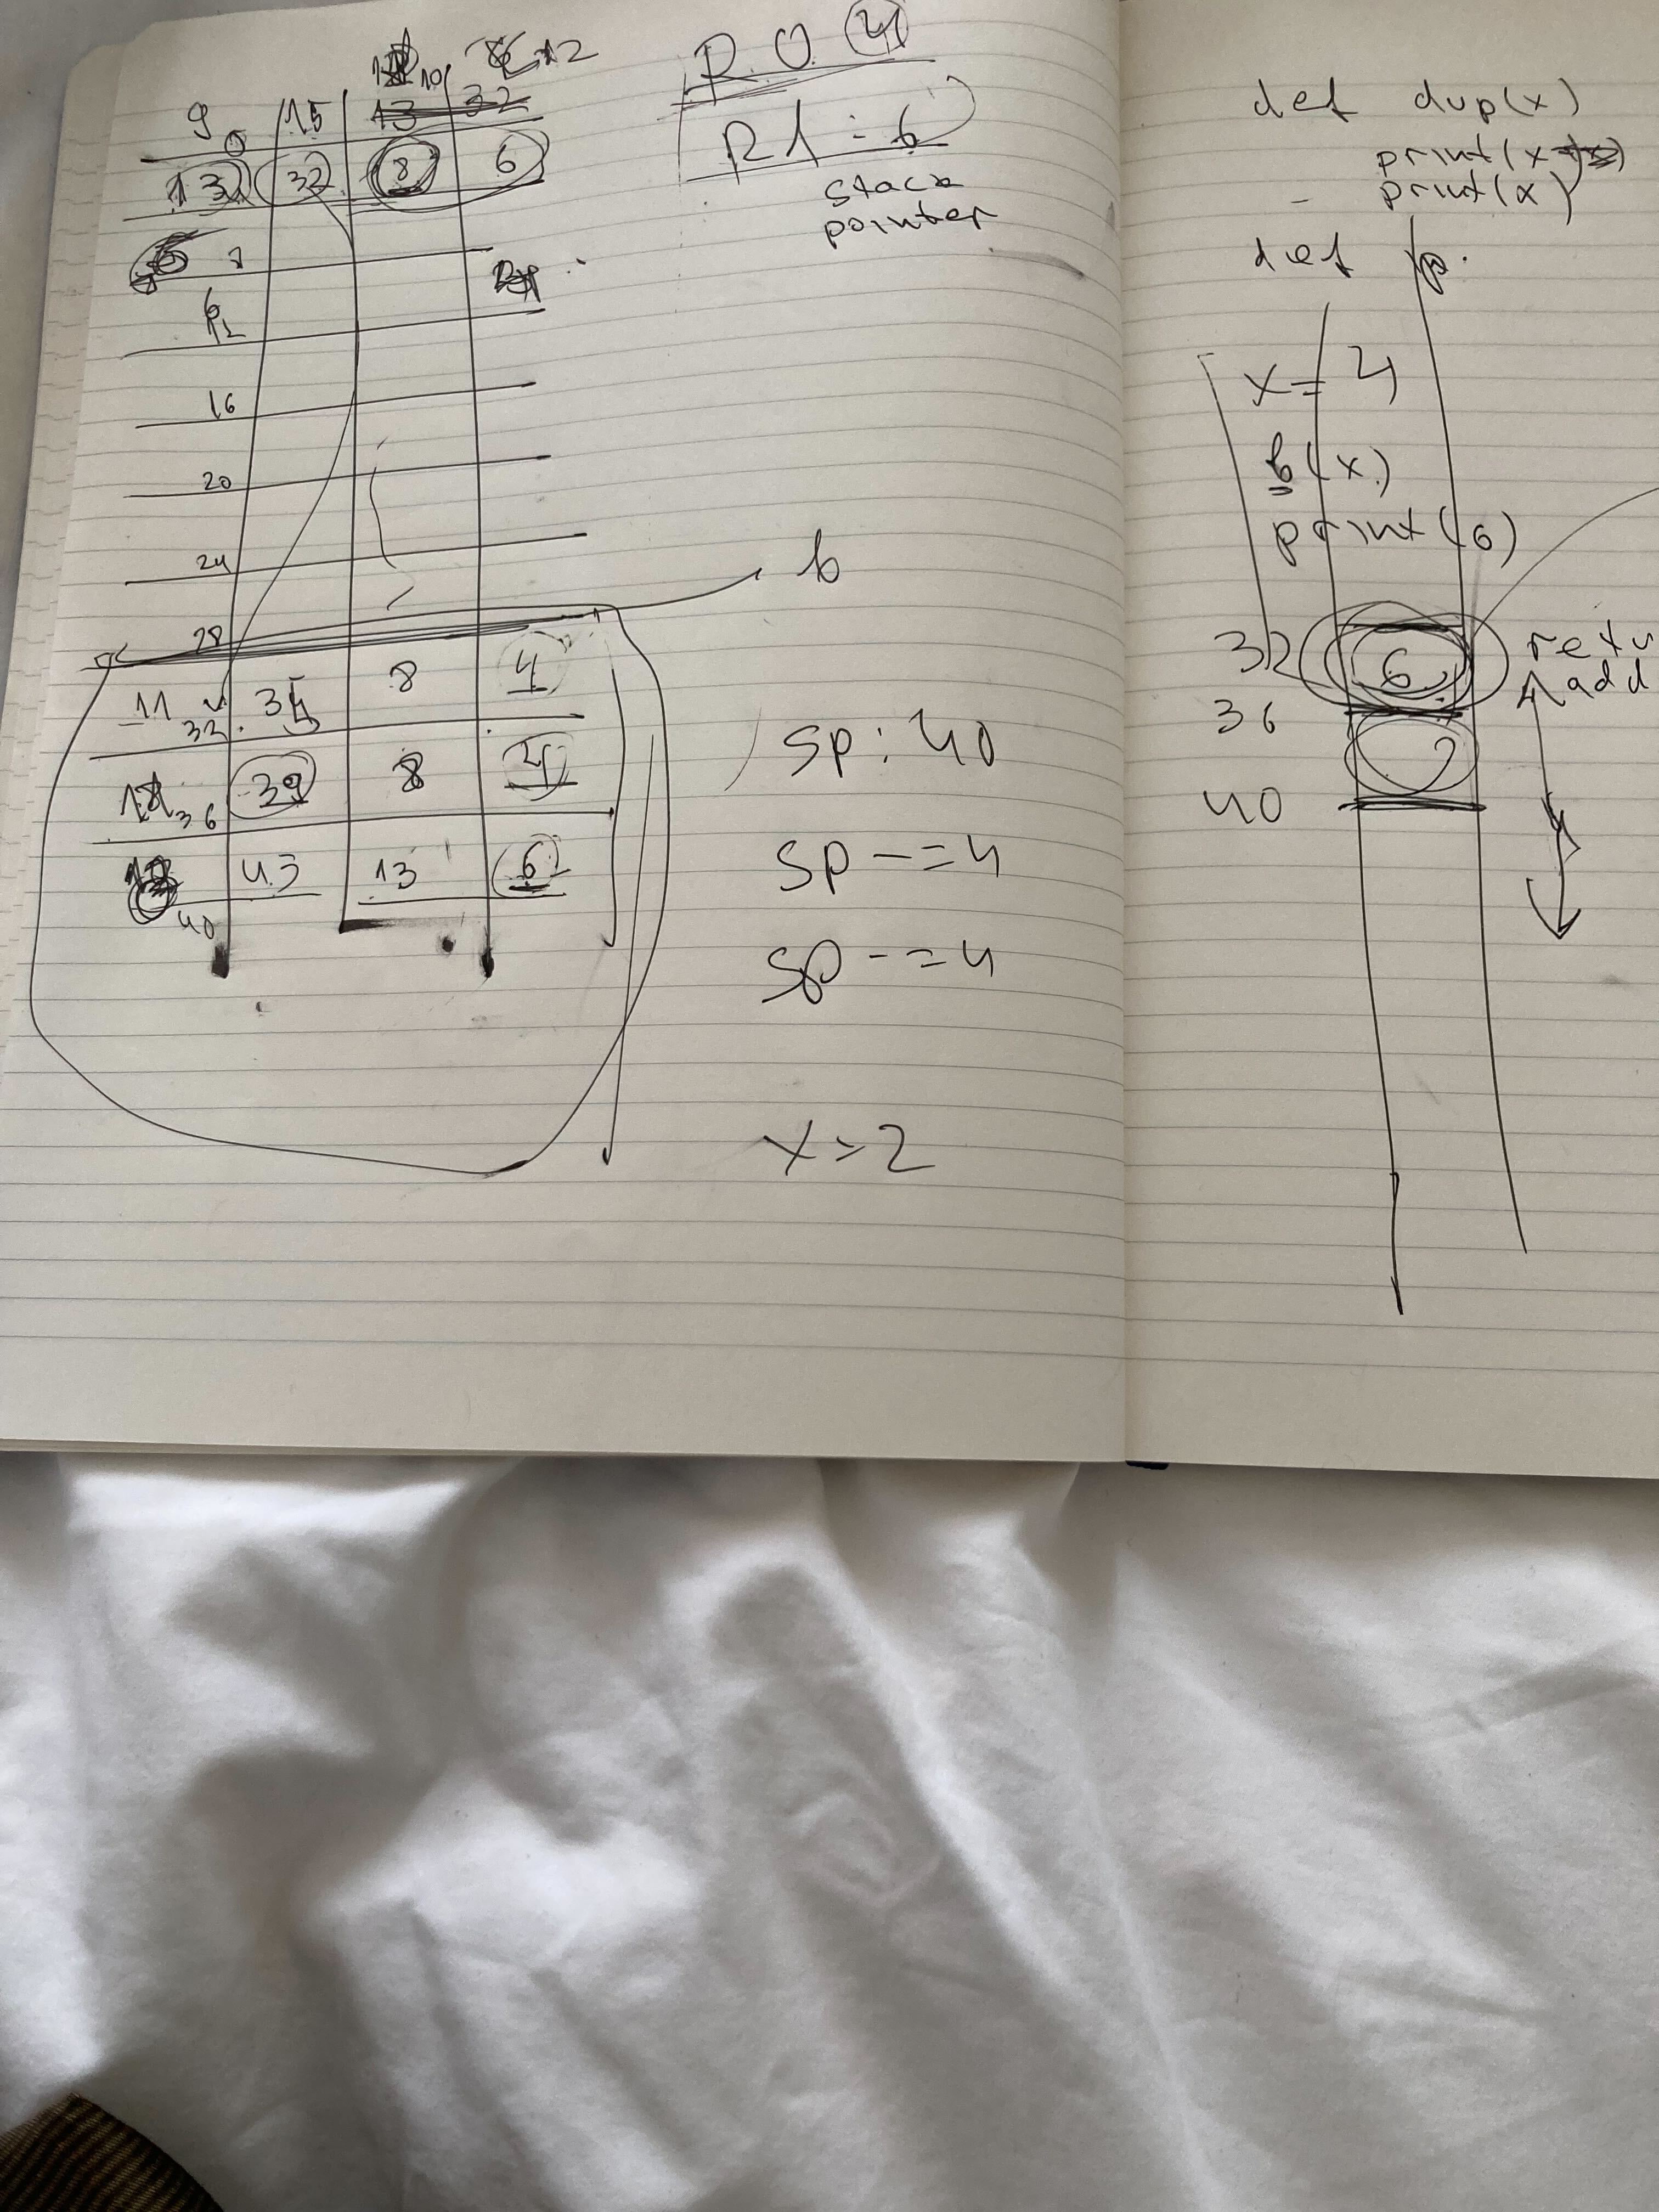 10 12
9 0 15 13 32
13 32 8 6
7
6
16
20
24
28
11 32 8 4
36 39 8 4
43 13 6
40
R0 4
R1 = 6
stack
pointer
b
sp: 40
sp -= 4
sp -= 4
x = 2
def dup(x)
print(x
print(x)
def
x = 4
b(x)
print(6)
32 6 retu
36 add
40